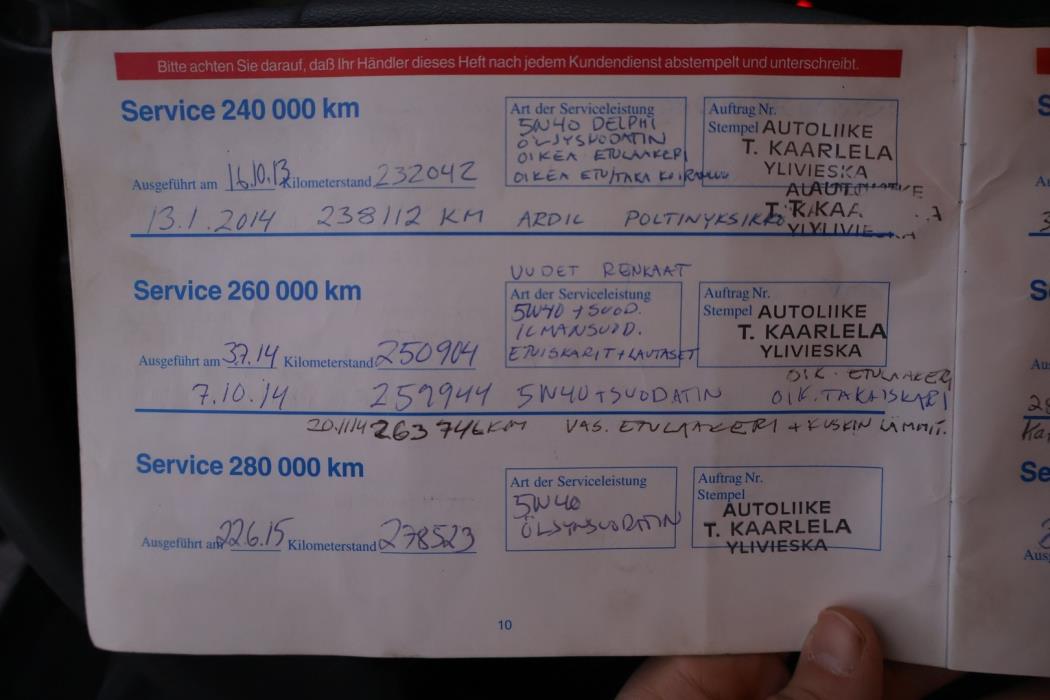 Bitte achten Sie darauf, daß Ihr Händler dieses Heft nach jedem Kundendienst abstempelt und unterschreibt.
Service 240 000 km
Art der Serviceleistung
5W40 DELPHI
ÖLJYSUODATIN
OIKEA ETULAAKERI
OIKEA ETU/TAKA
Auftrag Nr.
Stempel AUTOLIIKE
T. KAARLELA
YLIVIESKA
Ausgeführt am 16.10.13 Kilometerstand 232042
13.1.2014 238112 KM ARDIL POLTINYKSIKKÖ
UUDET RENKAAT
Service 260 000 km
Art der Serviceleistung
5W40 + SUOD.
ILMANSUOD.
ETUISKARIT + LAUTASET
Auftrag Nr.
Stempel AUTOLIIKE
T. KAARLELA
YLIVIESKA
Ausgeführt am 3.7.14 Kilometerstand 250904
OIK. ETULAAKERI
7.10.14 259944 5W40 + SUODATIN OIK. TAKAISKARI
20.11.14 263746 KM VAS. ETULAAKERI + KUSKIN LÄMMIT.
Service 280 000 km
Art der Serviceleistung
5W40
ÖLJYNSUODATIN
Auftrag Nr.
Stempel
AUTOLIIKE
T. KAARLELA
YLIVIESKA
Ausgeführt am 22.6.15 Kilometerstand 278523
10